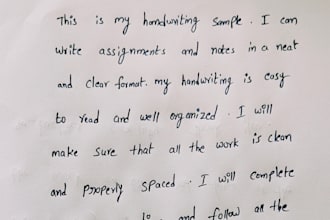 This is my handwriting sample. I can
write assignments and notes in a neat
and clear format. my handwriting is easy
to read and well organized. I will
make sure that all the work is clean
and properly spaced. I will complete
and follow all the